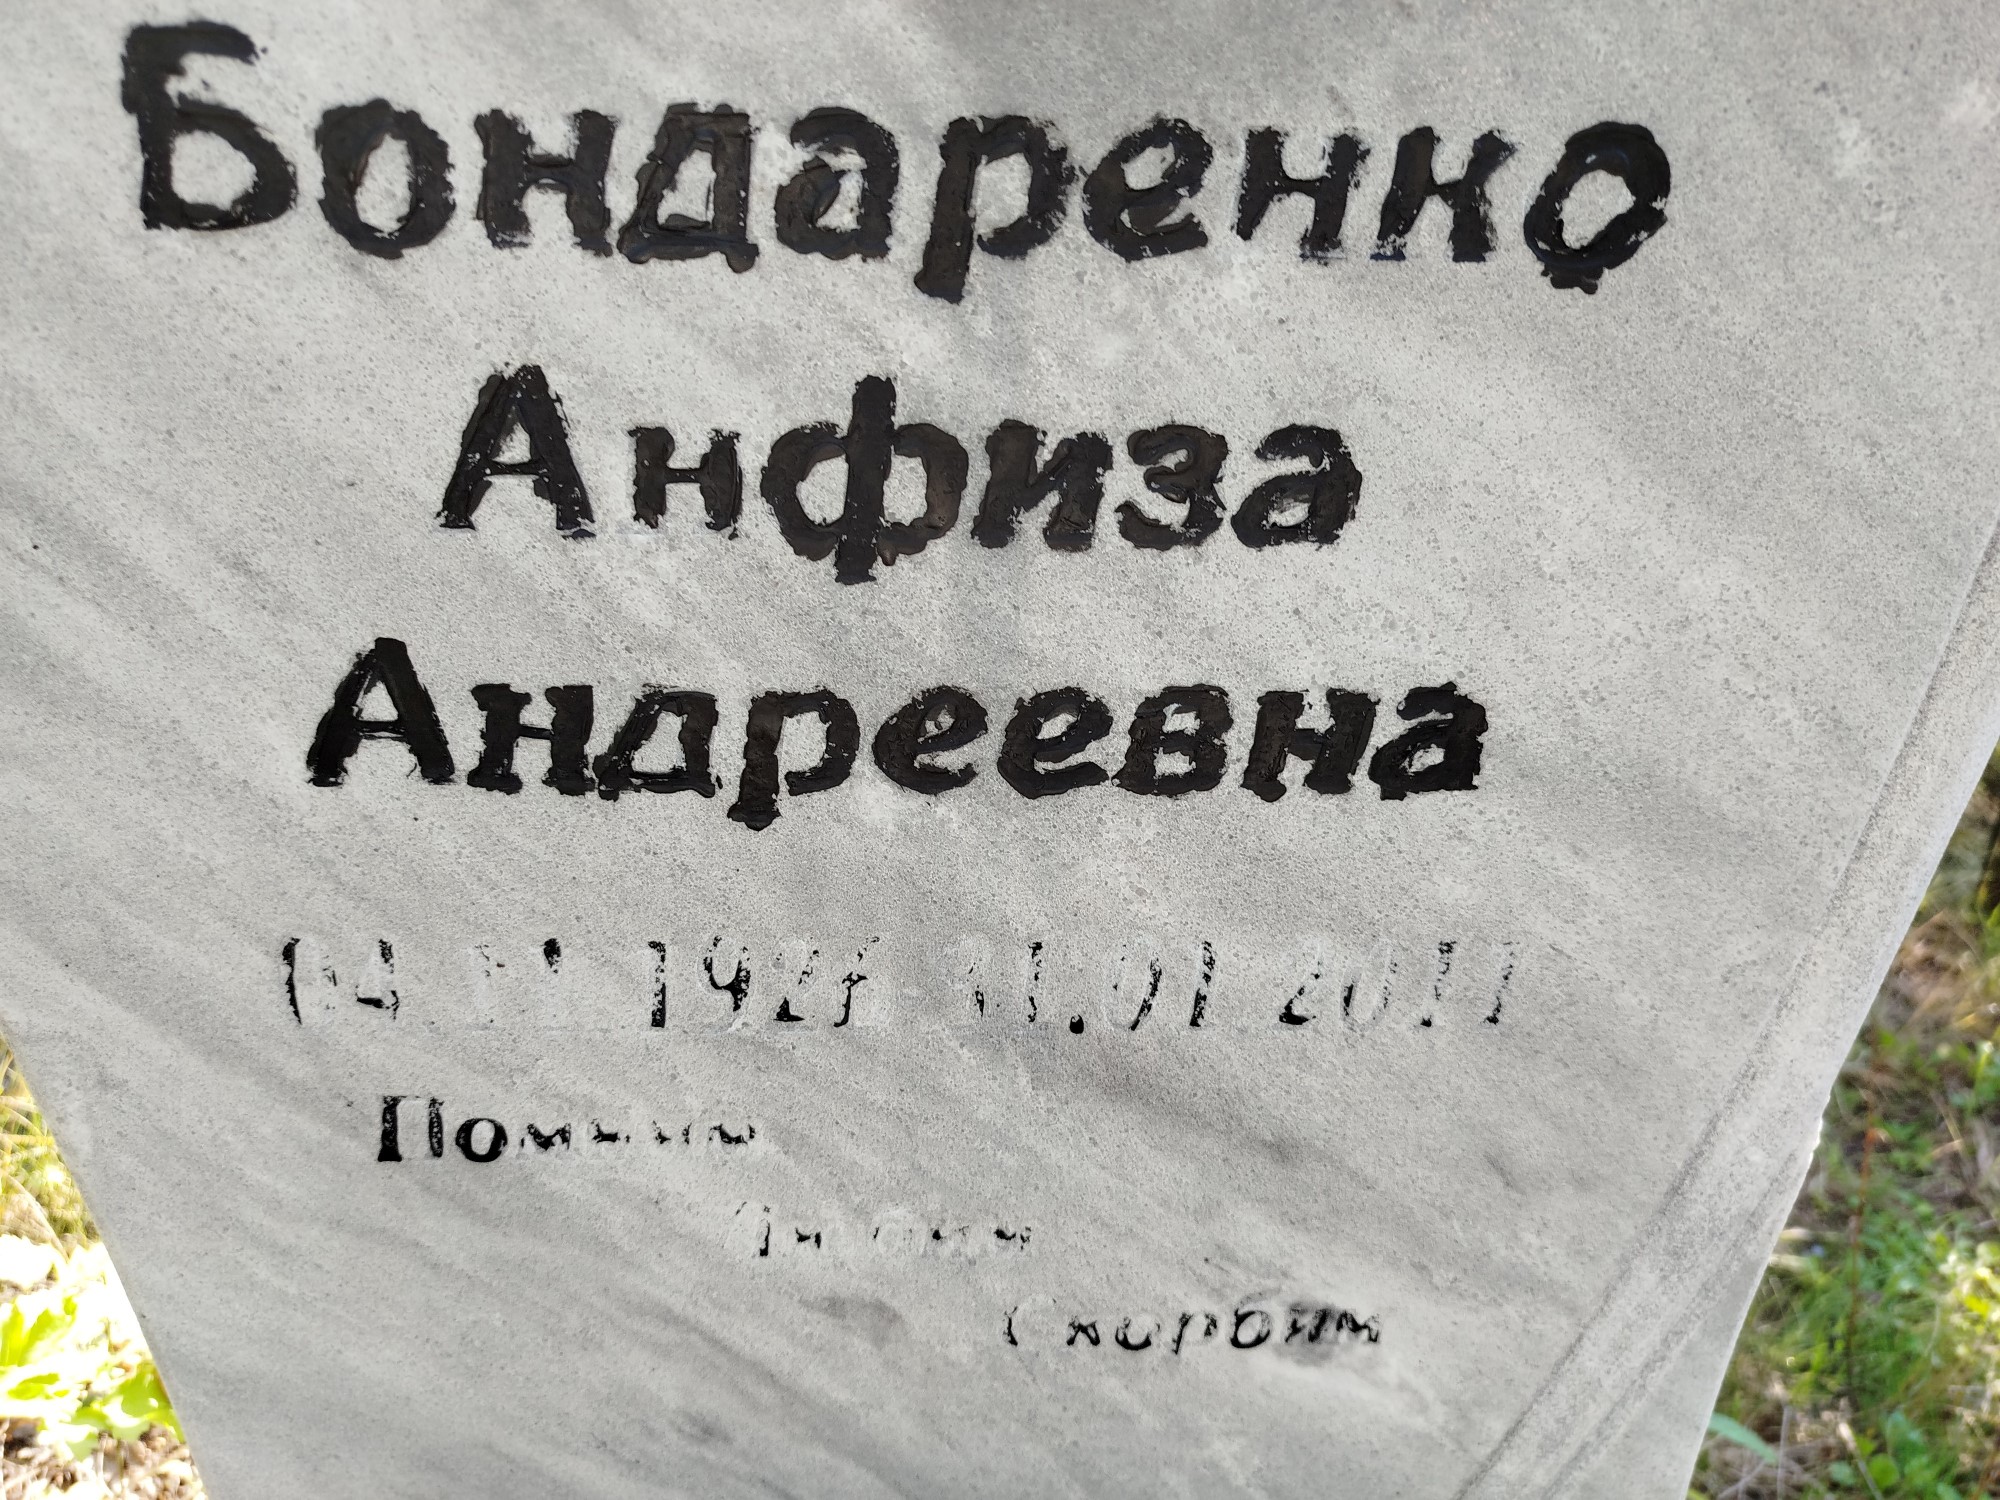 Бондаренко
Анфиза
Андреевна
31.01.2011
Помним
Любим
Скорбим